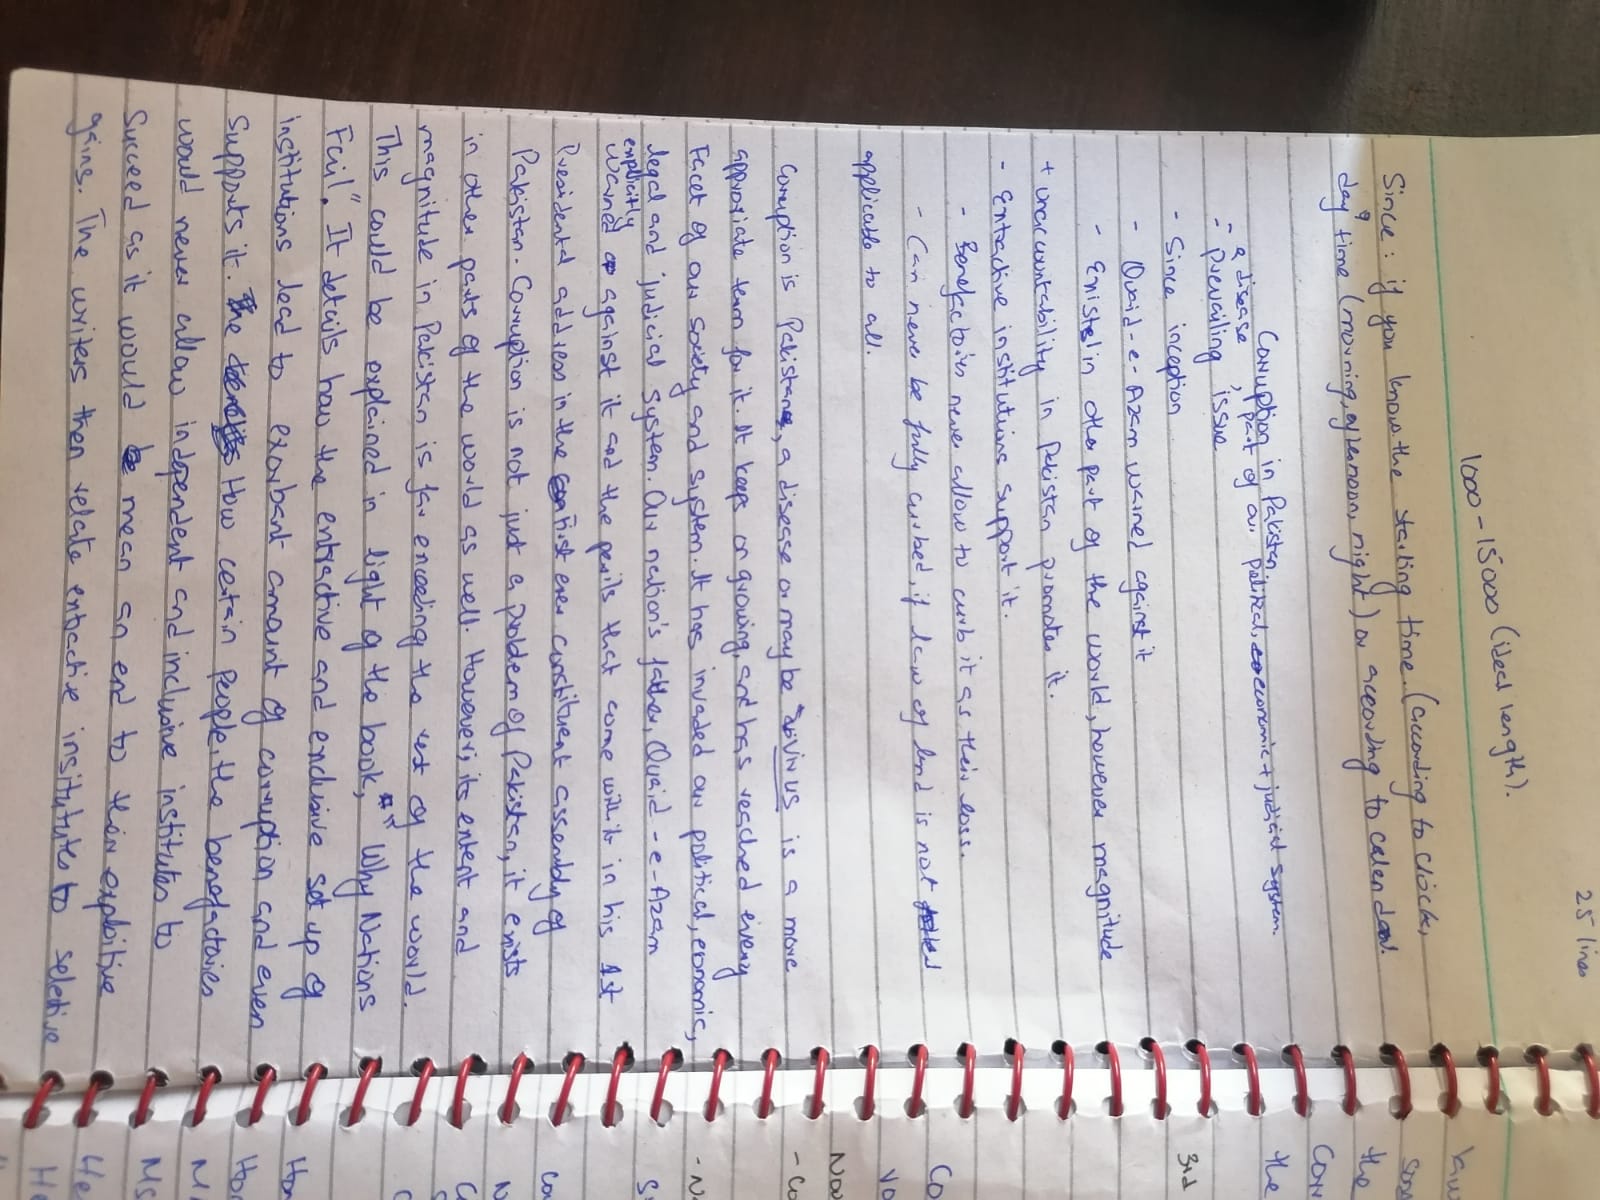 25 lines
1000-15000 (ideal length).
Since: if you know the starting time. (according to clock,
day time (morning, afternoon, night) or according to calendar.
Corruption in Pakistan.
- a disease, part of our political, economic + judicial system.
- Prevailing issue
- Since inception
- Quaid-e-Azam warned against it
- Exists in other part of the world, however magnitude
+ unaccountability in Pakistan promotes it.
- Extractive institutions support it.
- Benefactories never allow to curb it as their loss.
- Can never be fully curbed, if law of land is not
applicable to all.
Corruption is Pakistan, a disease or may be virus is a more
approriate term for it. It keeps on growing, and has reached every
Facet of our society and system. It has invaded our political, economic,
legal and judicial system. Our nation's father, Quaid-e-Azam
explicitly
warned against it and the perils that come with it in his 1st
Presidental address in the First ever constituent assembly of
Pakistan. Corruption is not just a problem of Pakistan, it exists
in other parts of the world as well. However, its extent and
magnitude in Pakistan is far exceeding the rest of the world.
This could be explained in light of the book, "Why Nations
Fail". It details how the extractive and exclusive set up of
institutions lead to exorbant amount of corruption and even
supports it. The How certain people, the benefactories
would never allow independent and inclusive institutes to
Succeed as it would mean an end to their exploitive
gains. The writers then relate extractive insitututes to selective
law
the
the
3rd
Co
Now
- Co